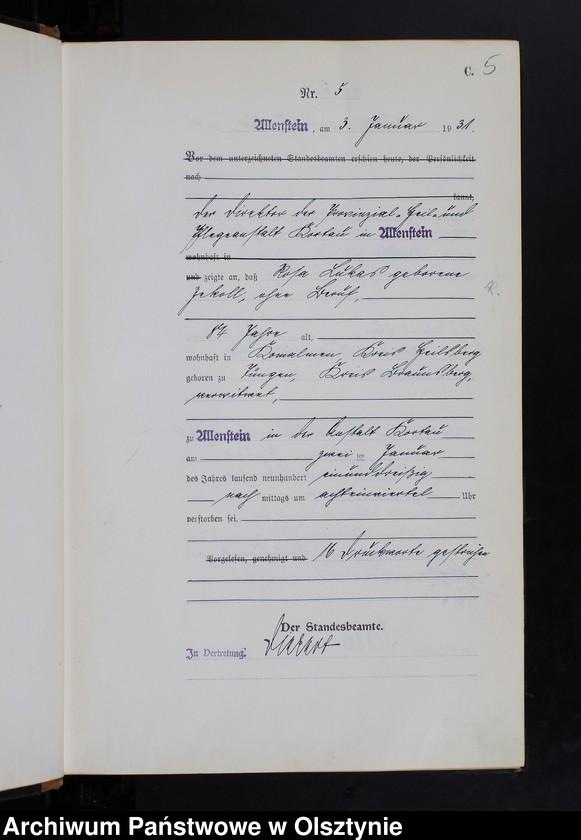 C. 5
Nr. 5
Allenstein, am 3. Januar 1931.
Vor dem unterzeichneten Standesbeamten erschien heute, der Persönlichkeit
nach
kannt,
Der Direktor der Provinzial-Heil- und
Pflegeanstalt Kortau in Allenstein
wohnhaft in
und zeigte an, daß Rosa Lukas geborene
ohne Beruf,
84 Jahre alt,
wohnhaft in Komalmen, Kreis Heilsberg
geboren zu Kreis Braunsberg,
verwitwet,
zu Allenstein in der Anstalt Kortau
am zwei ten Januar
des Jahres tausend neunhundert einunddreißig
nach mittags um achteinviertel Uhr
verstorben sei.
Vorgelesen, genehmigt und 16 Druckworte gestrichen
Der Standesbeamte.
In Vertretung:
Archiwum Państwowe w Olsztynie